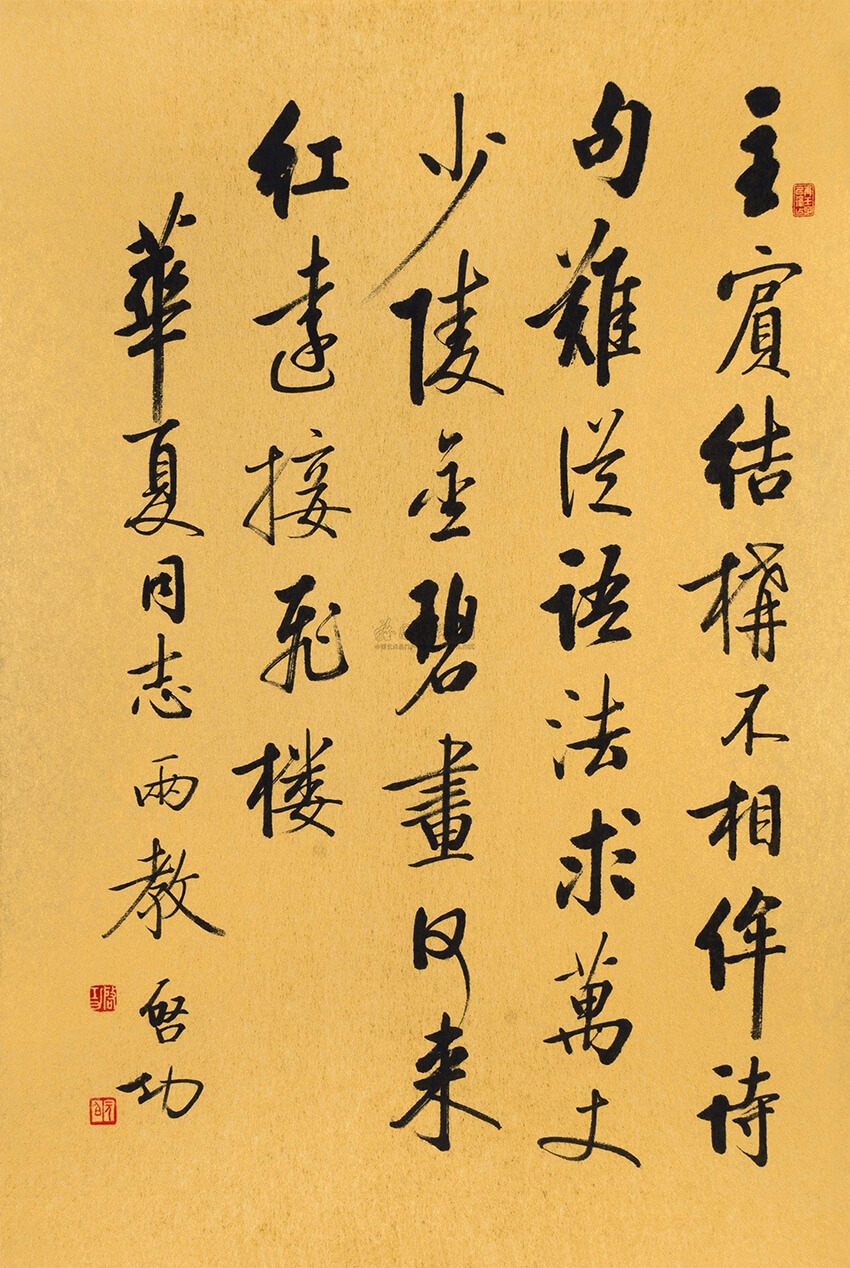 主賓結構不相侔詩
句難從語法求萬丈
少陵金碧畫何来
紅遠接飛楼
華夏同志兩教 啓功